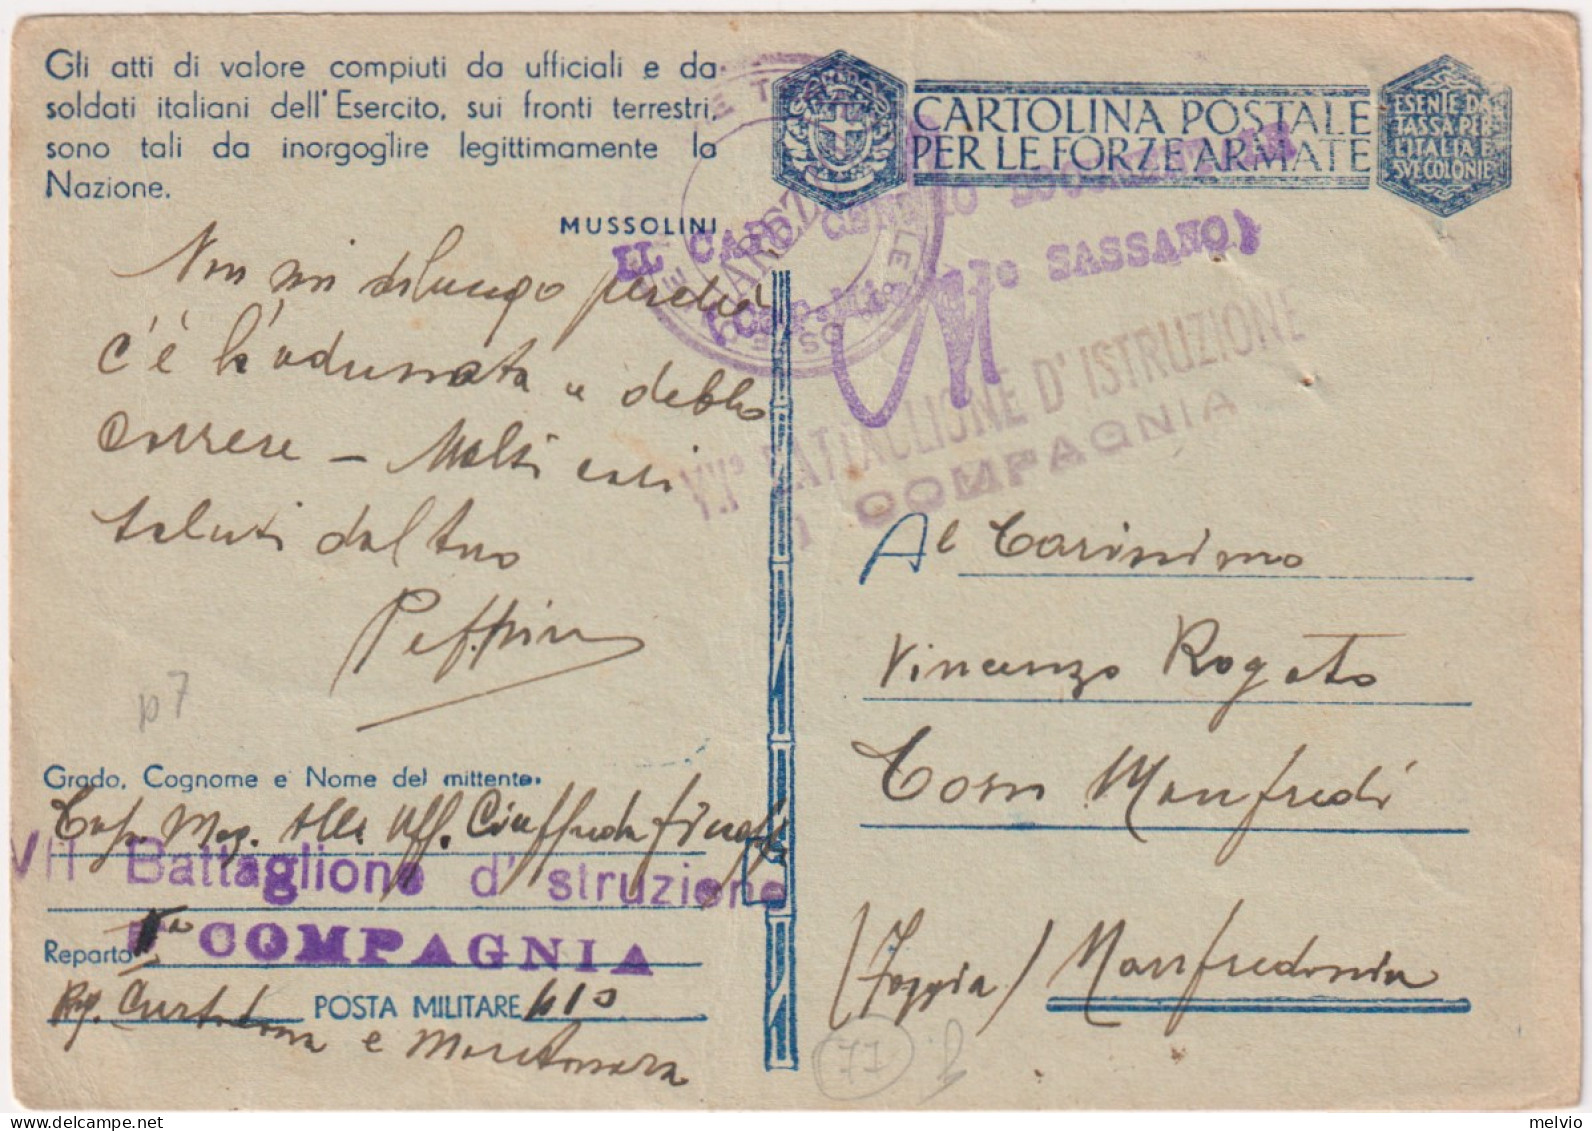 Gli atti di valore compiuti da ufficiali e da
soldati italiani dell'Esercito, sui fronti terrestri,
sono tali da inorgoglire legittimamente la
Nazione.
MUSSOLINI
CARTOLINA POSTALE
PER LE FORZE ARMATE
ESENTE DA
TASSA PER
L'ITALIA E
SVE COLONIE
IL CAPO
SASSANO)
BATTAGLIONE D'ISTRUZIONE
COMPAGNIA
Non mi dilungo perché
c'è l'adunata e debbo
correre - Molti cari
saluti dal tuo
Peppino
p7
Grado, Cognome e Nome del mittente
Cap. Mag. All. Uff. Ciuffreda
VII Battaglione d'istruzione
Reparto 1a COMPAGNIA
Rg. Curtatone POSTA MILITARE 410
e Montanara
Al Carissimo
Vincenzo Rogato
Corso Manfredi
(Foggia) Manfredonia
17
melvio